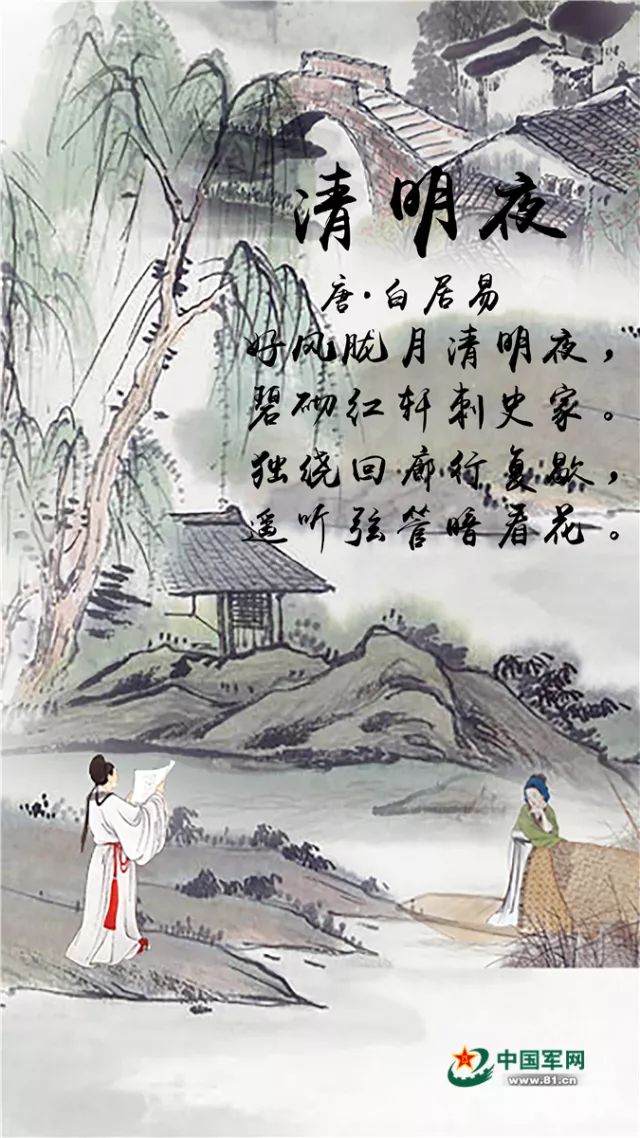 清明夜
唐·白居易
好风胧月清明夜，
碧砌红轩刺史家。
独绕回廊行复歇，
遥听弦管暗看花。
中国军网
www.81.cn